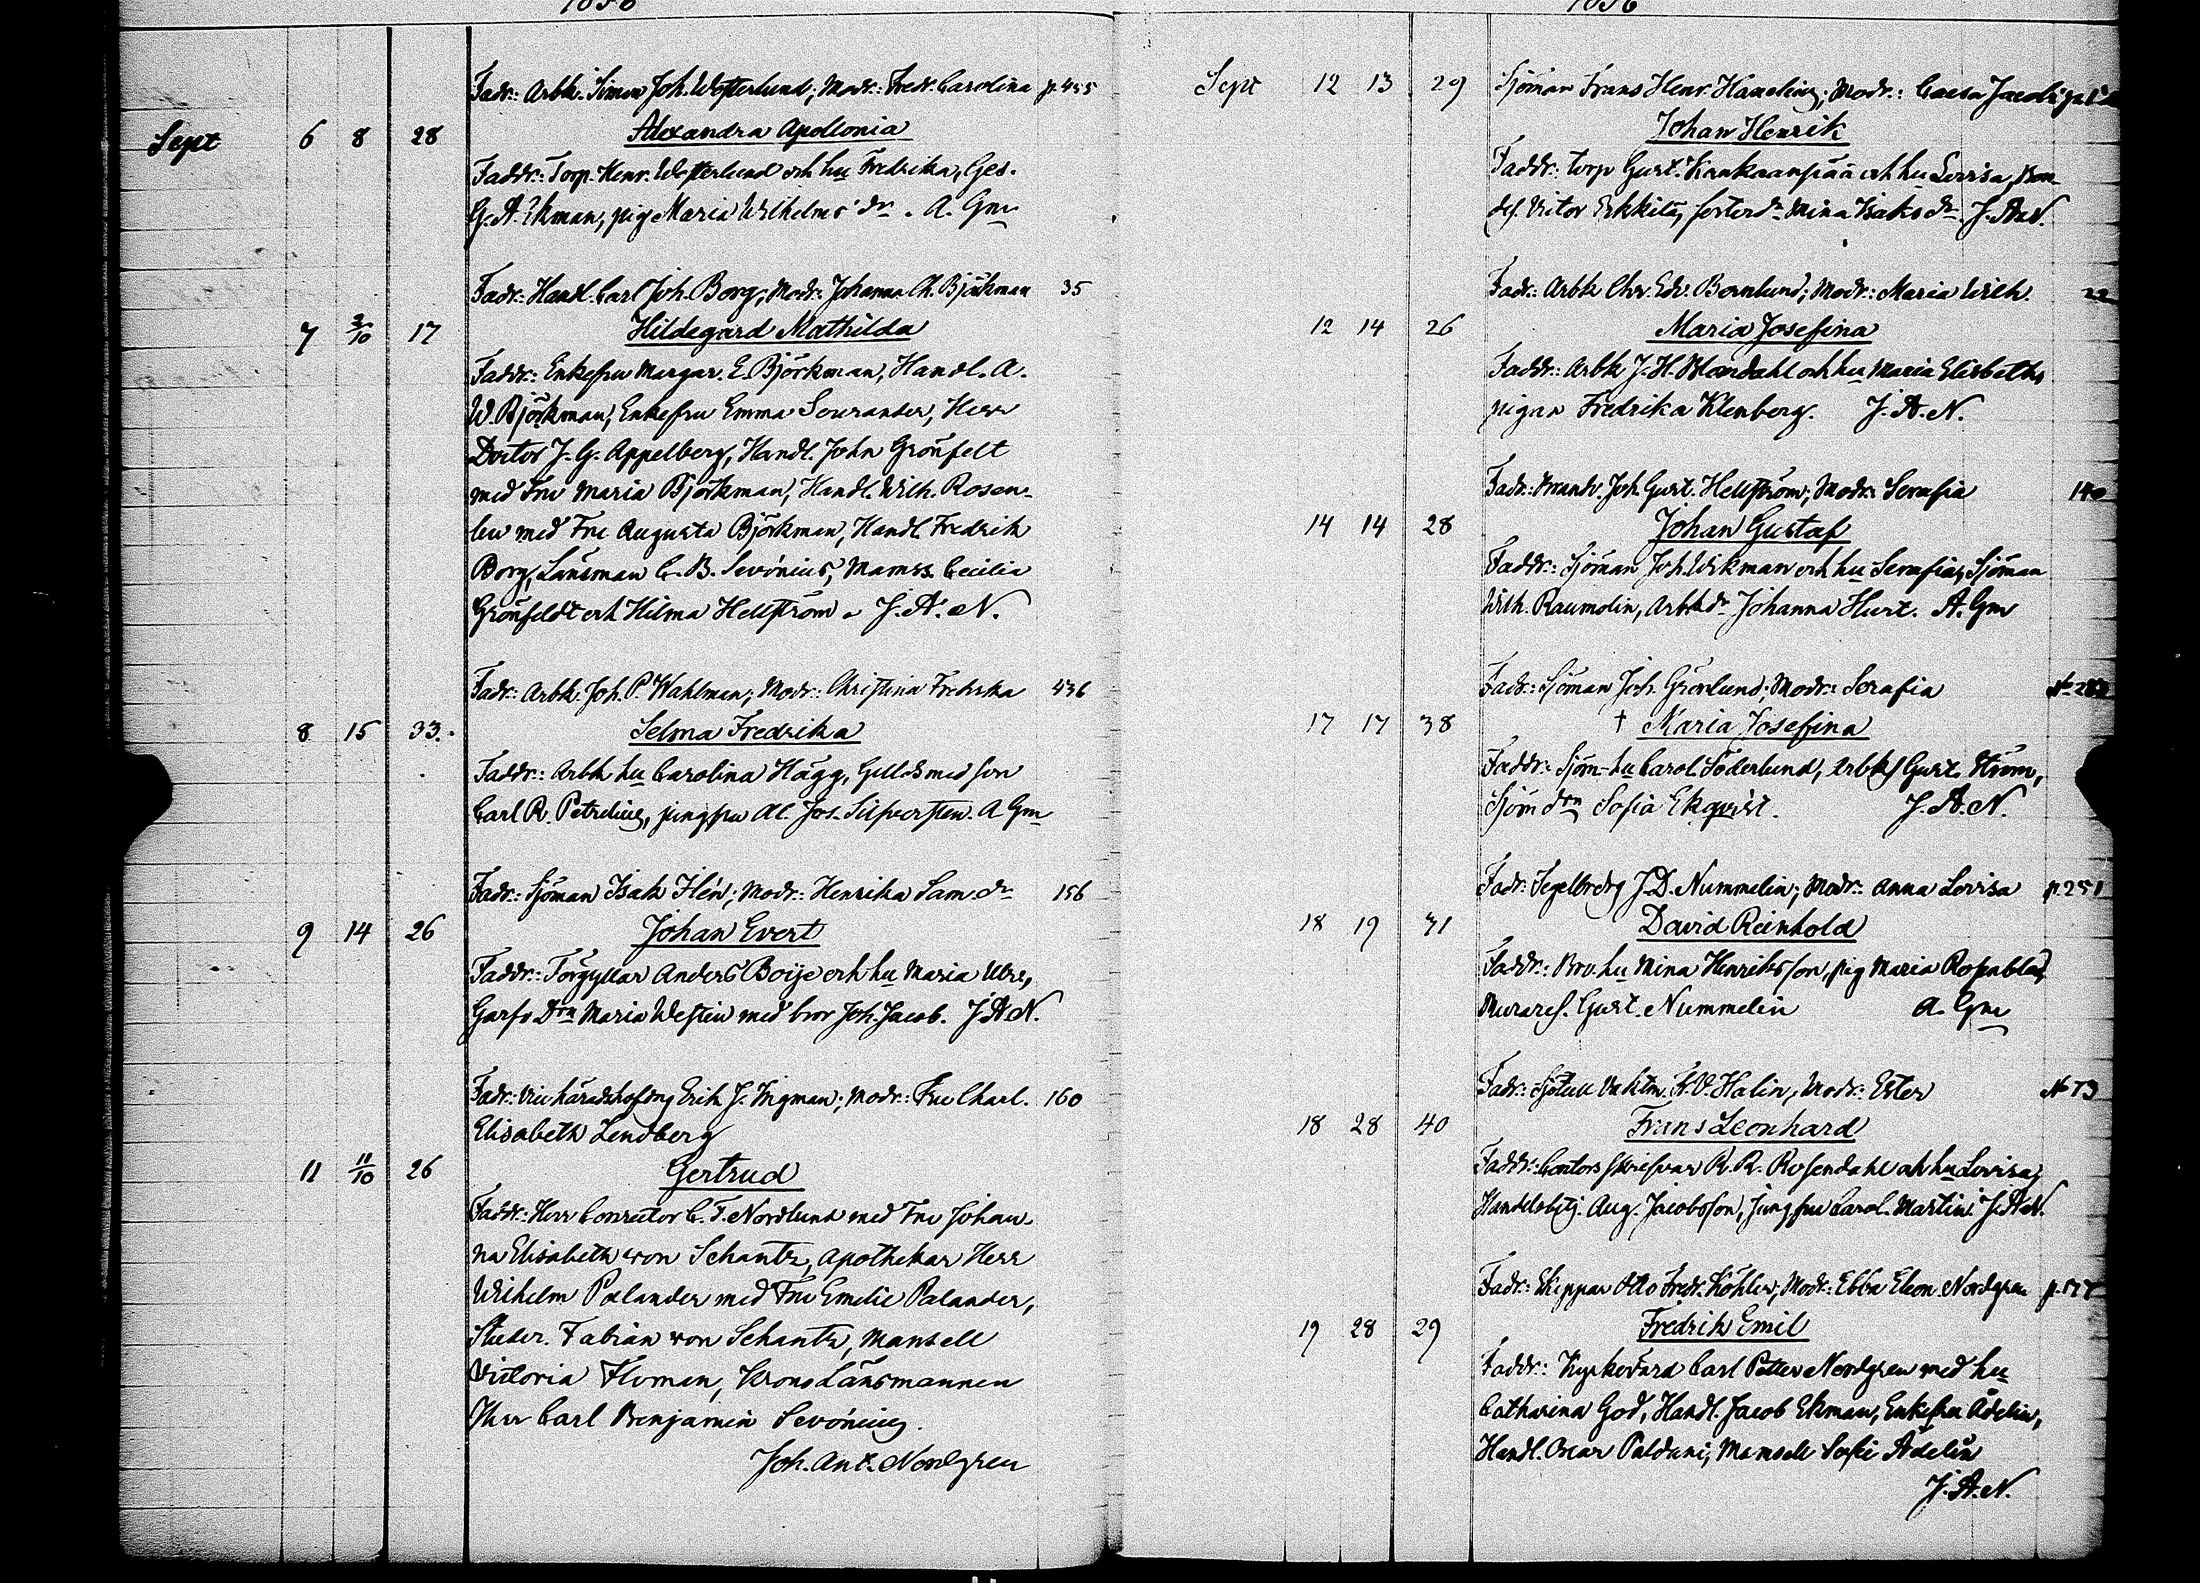 1856
Fadr: Arbk. Simon Joh. Westerlund; Modr: Fredr. Carolina p. 455
Sept 6 8 28 Alexandra Apollonia
Faddr: Torp. Henr. Westerlund och hu Fredrika, Ges.
G. A. Ekman, pig Maria Wilhelms dr. A. Gm
Fadr: Handl. Carl Joh. Borg; Modr: Johanna Ch. Björkman 35
7 2/10 17 Hildegard Mathilda
Faddr: Enkefru Margar. E. Björkman, Handl. A.
W. Björkman, Enkefru Emma Sourander, Herr
Doctor J. G. Appelberg, Handl. John Grönfelt
med Fru Maria Björkman, Handl. Wilh. Rosen-
lew med Fru Augusta Björkman, Handl. Fredrik
Borg, Länsman C. B. Sevónius, Mamss. Cecilia
Grönfeldt och Hilma Hellström. J. A. N.
Fadr: Arbk. Joh. P. Wahlman; Modr: Christina Fredrika 436
8 15 33. Selma Fredrika
Faddr: Arbk hu Carolina Hägg, Gulldsmed son
Carl R. Petrelius, jungfru Al. Jos. Silfversten. A Gm
Fadr: Sjöman Isak Ilén; Modr: Henrika Sam. dr 156
9 14 26 Johan Evert
Faddr: Förgyllar Anders Boije och hu Maria Ulr.,
Garfv Drn Maria Westin med bror Joh. Jacob. J. A. N.
Fadr: Vice häradshöfdng Erik J. Ingman; Modr: Fru Charl. 160
Elisabeth Lendberg
11 11/10 26 Gertrud
Faddr: Herr Conrector C. F. Nordlund med Fru Johan-
na Elisabeth von Schantz, Apothekar Herr
Wilhelm Palander med Fru Emelie Palander,
Studer. Fabian von Schantz, Mamsell
Victoria Floman, Krono Länsmannen
Herr Carl Benjamin Sevónius.
Joh. Ant. Nordgren
1856
Sept 12 13 29 Sjöman Frans Henr. Hameling; Modr: Caesa Jacobs
Johan Henrik
Faddr: torp Gust. Kankaanpää och hu Lovisa, Bon-
des. Victor Erkkilä, fosterdr Mina Isaks dr. J. A. N.
Fadr: Arbk Chr. Edv. Bernlund; Modr: Maria Wilh. 22
12 14 26 Maria Josefina
Faddr: Arbk J. H. Blomdahl och hu Maria Elisbeth,
pigan Fredrika Klenberg. J. A. N.
Fadr: Joh. Gust. Hellström; Modr: Serafia 140
14 14 28 Johan Gustaf
Faddr: Sjöman Joh. Wikman och hu Serafia, Sjöman
Wilh. Raumolin, Arbk dr Johanna Hurt. A. Gm
Fadr: Sjöman Joh. Grönlund; Modr: Serafia
17 17 38 † Maria Josefina
Faddr: Sjöm-hu Carol. Söderlund, Arbks Gust. Ström,
Sjöm drn Sofia Ekqvist. J. A. N.
Fadr: J. D. Nummelin; Modr: Anna Lovisa p. 251
18 19 31 David Reinhold
Faddr: hu Mina Henriksson, pig Maria Rosenblad,
Murares. Gust. Nummelin A. Gm
Fadr: Sjötull Vaktm. K. V. Halin, Modr: Ester No 73
18 28 40 Frans Leonhard
Faddr: Contors skrifvar R. R. Rosendahl och hu Lovisa,
Handelsbtj. Aug. Jacobsson, jungfru Carol. Martin. J. A. N.
Fadr: Skeppar Otto Fredr. Köhler; Modr: Ebba Eleon. Nordgren
19 28 29 Fredrik Emil
Faddr: Kyrkovärd Carl Petter Nordgren med hu
Catharina God, Handl. Jacob Ekman, Enkefru Ådelin,
Handl. Oscar Paldani, Mamsell Sofie Ådelin
J. A. N.